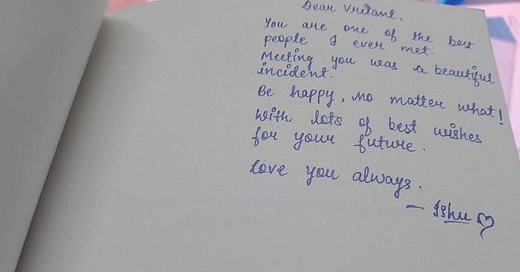 Dear Vritant,
You are one of the best
people I ever met.
Meeting you was a beautiful
incident.
Be happy, no matter what!
With lots of best wishes
for your future.
Love you always.
— Ishu ♡